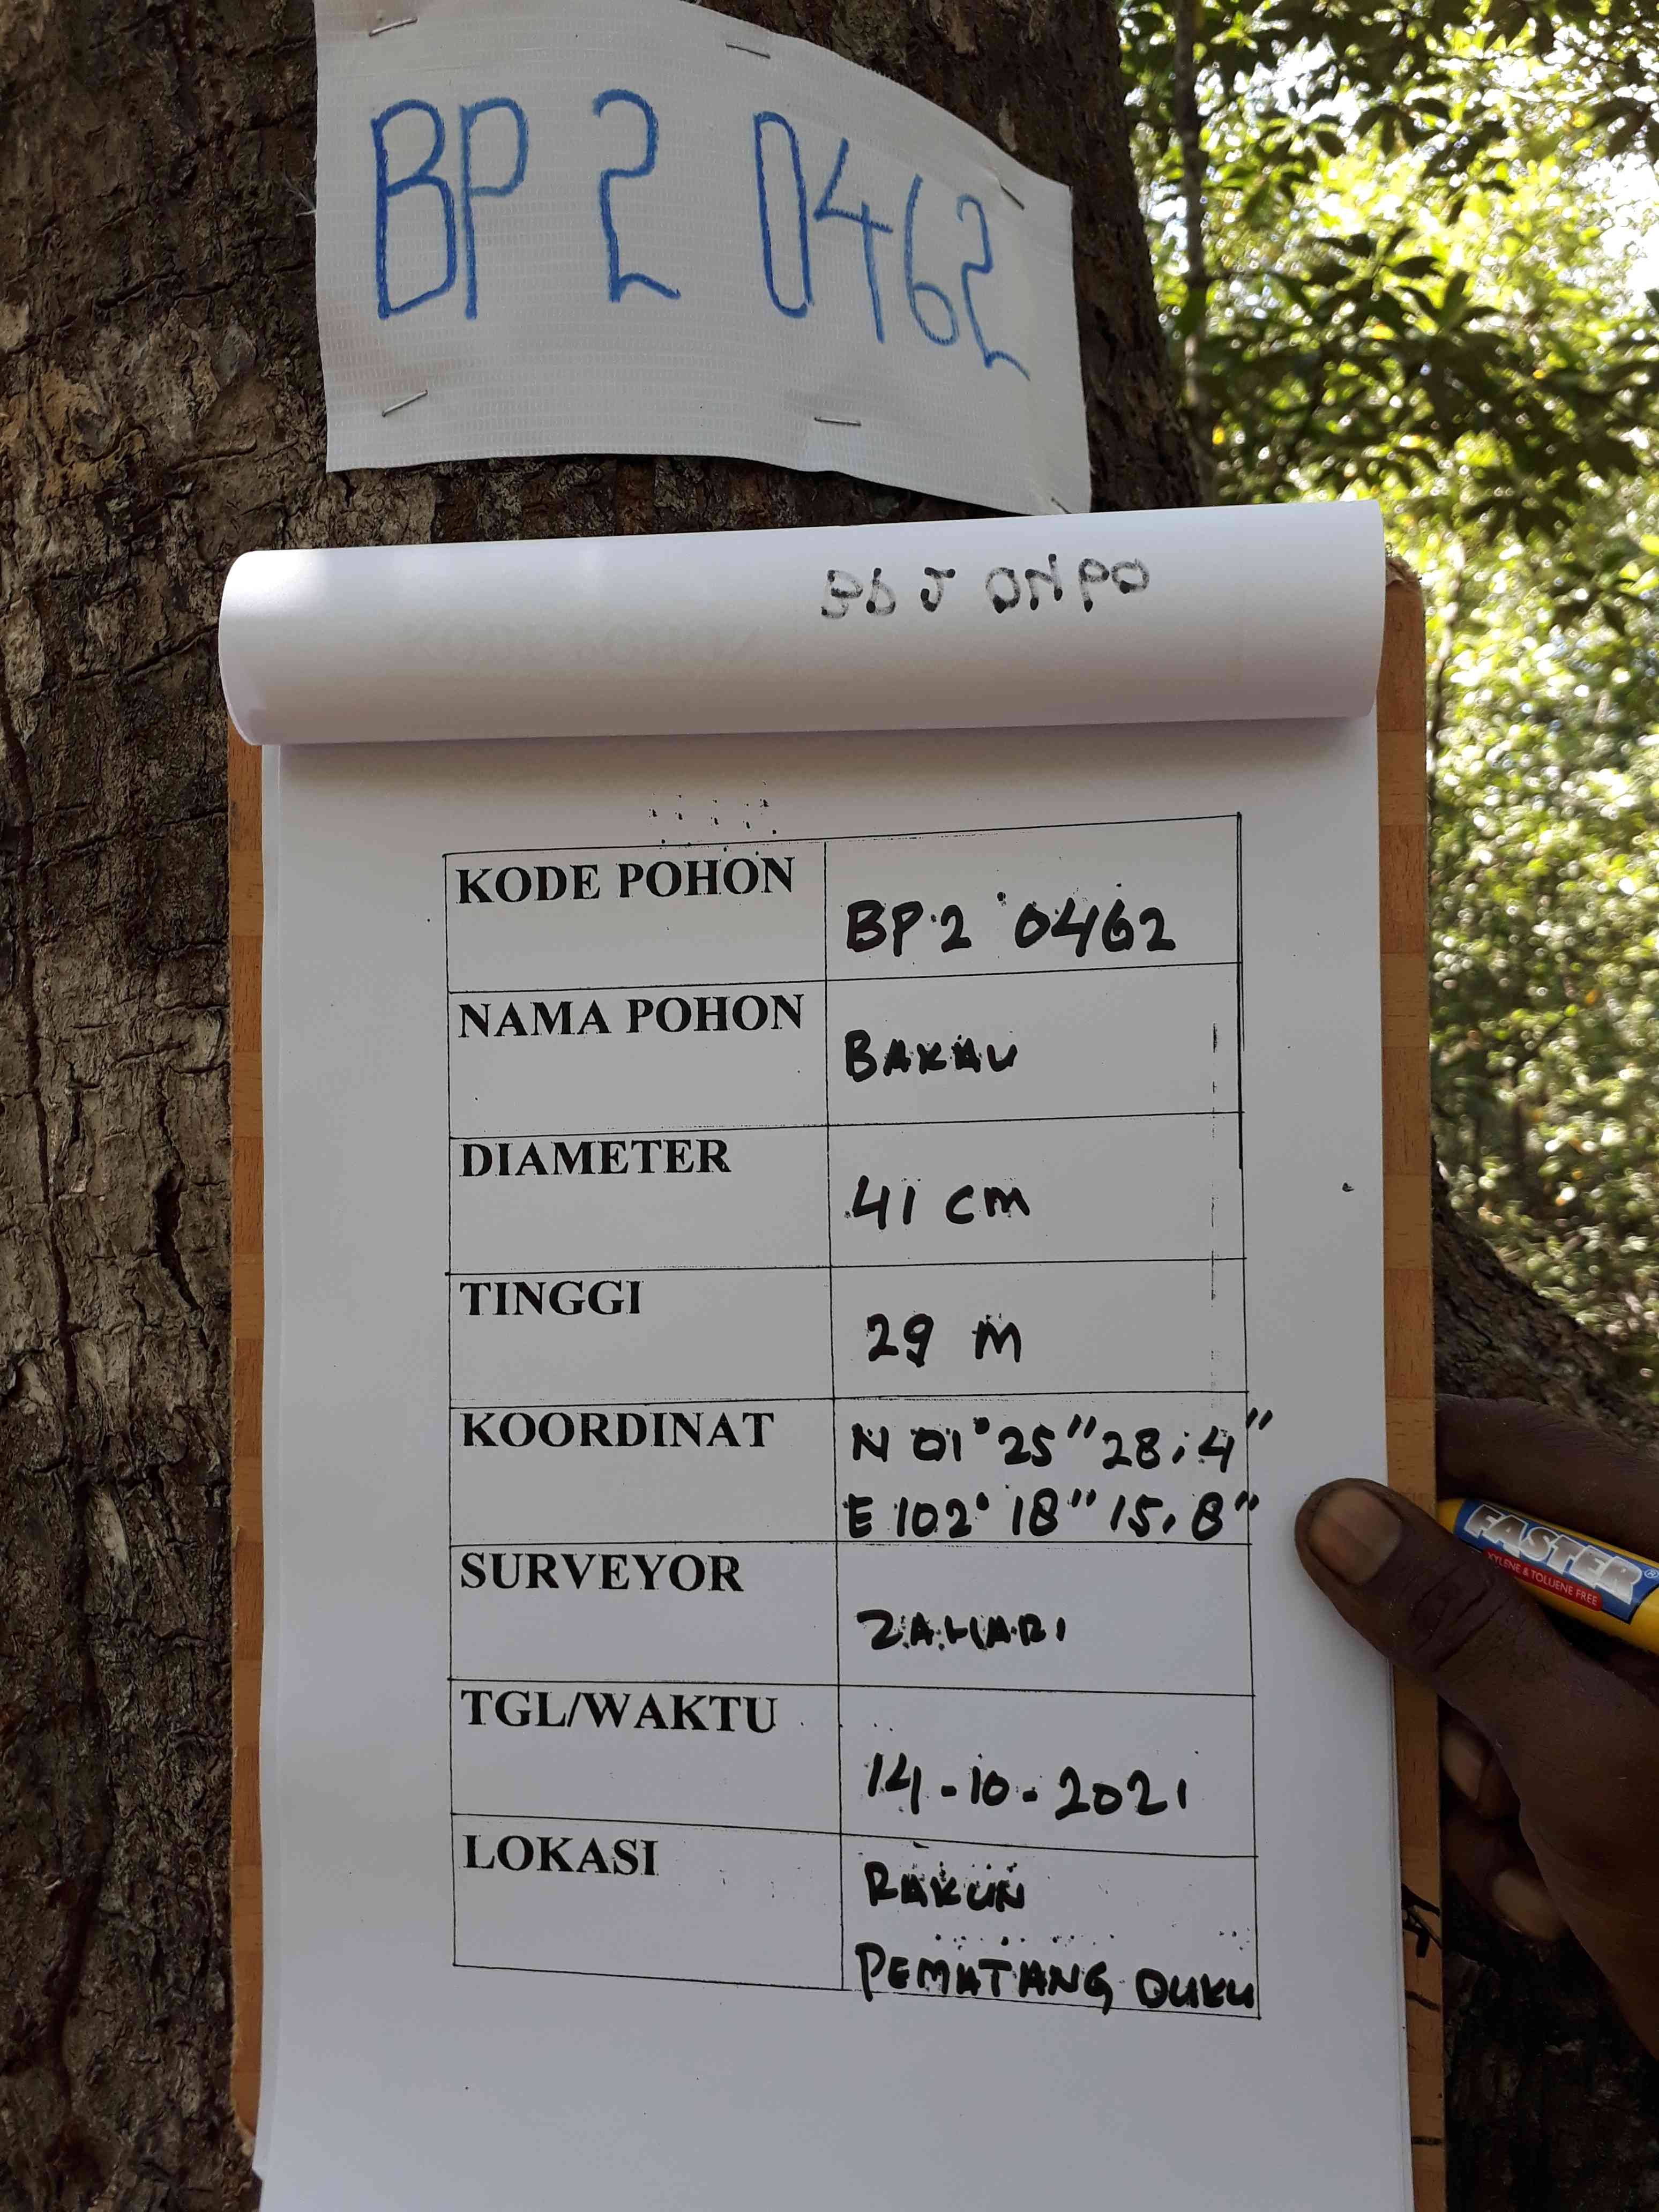 BP 2 0462
KODE POHON
BP 2 0462
NAMA POHON
BAKAU
DIAMETER
41 cm
TINGGI
29 M
KOORDINAT
N 01° 25" 28,4"
E 102° 18" 15,8"
SURVEYOR
ZAHARI
TGL/WAKTU
14-10-2021
LOKASI
RAKUN
PEMATANG DUKU
FASTER®
XYLENE & TOLUENE FREE